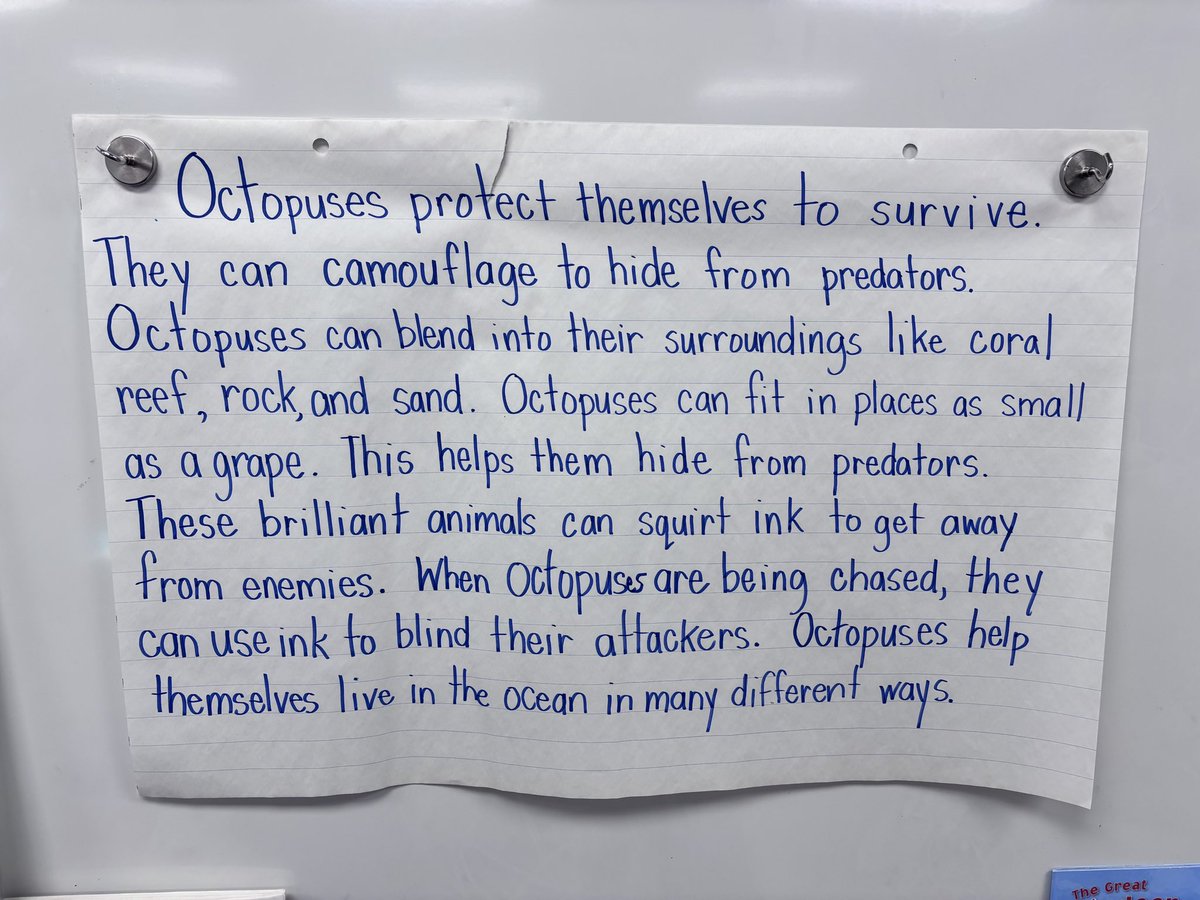 Octopuses protect themselves to survive.
They can camouflage to hide from predators.
Octopuses can blend into their surroundings like coral
reef, rock, and sand. Octopuses can fit in places as small
as a grape. This helps them hide from predators.
These brilliant animals can squirt ink to get away
from enemies. When Octopuses are being chased, they
can use ink to blind their attackers. Octopuses help
themselves live in the ocean in many different ways.
The Great